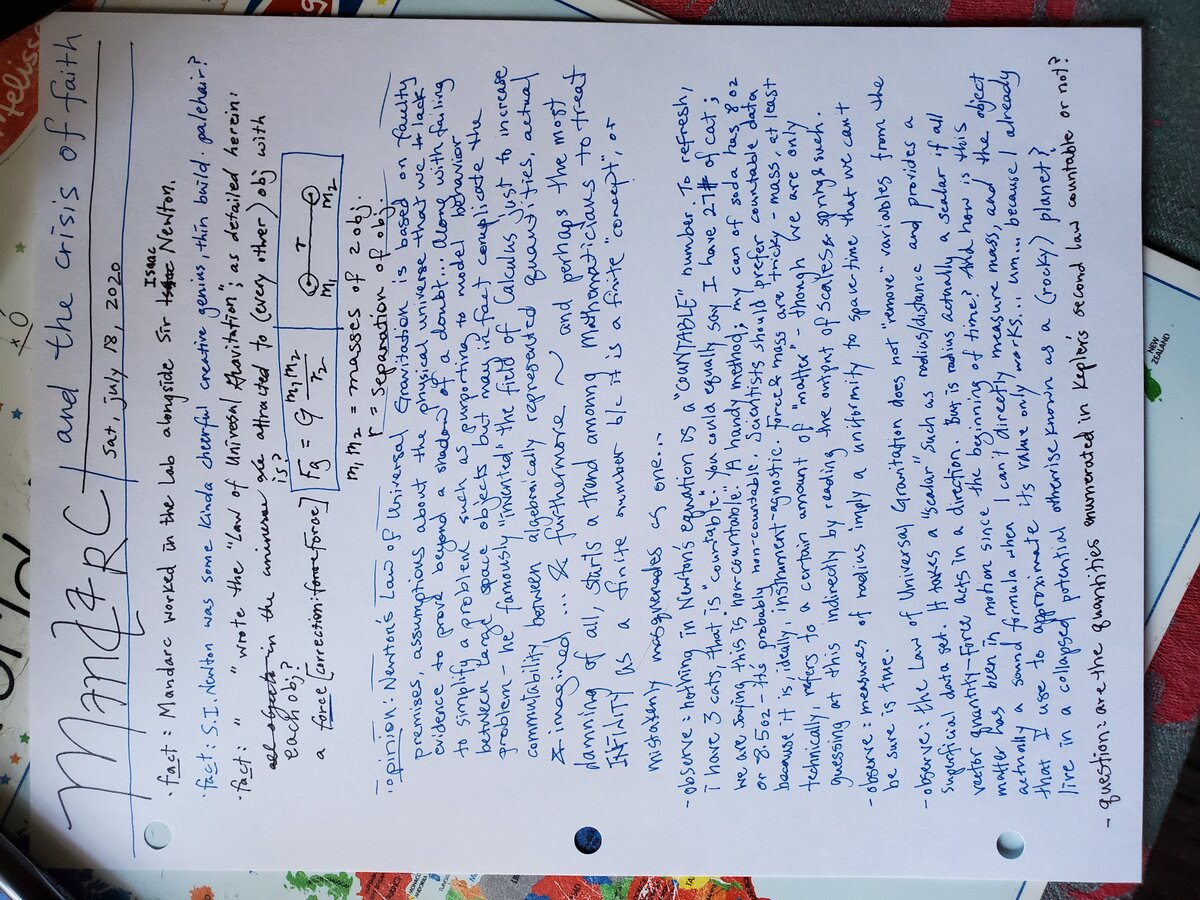 orld
Melissa
MandarC
and the crisis of faith
Sat, july 18, 2020
· fact: Mandarc worked in the Lab alongside Sir Isaac Newton.
· fact: S.I. Newton was some kinda cheerful creative genius, thin build. palehair?
· fact: " " wrote the "Law of Universal Gravitation"; as detailed herein:
all objects in the universe are attracted to (every other) obj with
each obj? is?
a force [correction: force Force]
Fg = G m1m2/r2
r
m1 m2
m1 m2 = masses of 2 obj.
r = separation of obj.
· opinion: Newton's Law of Universal Gravitation is based on faulty
premises, assumptions about the physical universe that we lack
evidence to prove beyond a shadow of a doubt... Along with failing
to simplify a problem such as purporting to model behavior
between large space objects but may in fact complicate the
problem - he famously "invented" the field of Calculus just to increase
commutability between algebraically represented quantities, actual
& imagined ... & furthermore ~ and perhaps the most
damning of all, starts a trend among Mathematicians to treat
INFINITY as a finite number b/c it is a finite "concept", or
mistakenly masquerades as one...
- observe: nothing in Newton's equation is a "COUNTABLE" number. To refresh,
i have 3 cats, that is "countable". You could equally say I have 27# of cat;
we are saying this is "non-countable". A handy method; my can of soda has 8 oz
or 8.5oz - its probably non-countable. Scientists should prefer countable data
because it is, ideally, instrument-agnostic. Force & mass are "tricky" - mass, at least
technically, refers to a certain amount of "matter" - though we are only
guessing at this indirectly by reading the output of scales & springs & such.
- observe: measures of radius imply a uniformity to space-time that we can't
be sure is true.
- observe: the Law of Universal Gravitation does not "remove" variables from the
superficial data set. It takes a "scalar" such as radius/distance and provides a
vector quantity - Force acts in a direction. But is radius actually a scalar if all
matter has been in motion since the beginning of time? And how is this
actually a sound formula when I can't directly measure mass, and the object
that I use to approximate its value only works... um... because I already
live in a collapsed potential otherwise known as a (rocky) planet?
- question: are the quantities enumerated in Kepler's second law countable or not?
NEW
ZEALAND